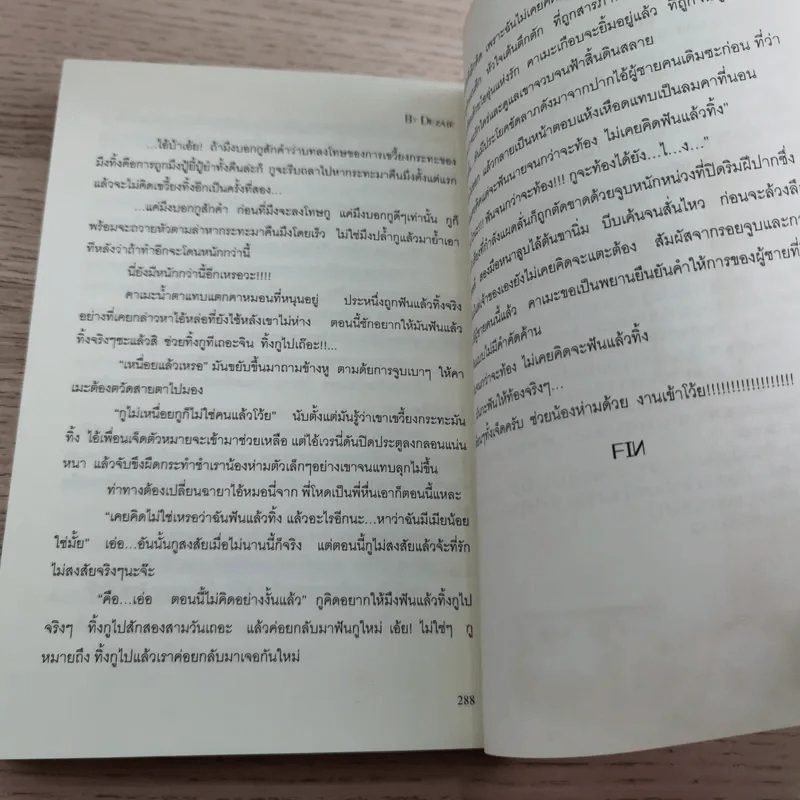 BY DEZAIR
...ไอ้บ้าเอ้ย! ถ้ามึงบอกกูสักคำว่าบทลงโทษของการเขวี้ยงกระทะของ
มึงทิ้งคือการถูกมึงปู้ยี่ปู้ยำทั้งคืนล่ะก็ กูจะรีบถลาไปหากระทะมาคืนมึงตั้งแต่แรก
แล้วจะไม่คิดเขวี้ยงทิ้งอีกเป็นครั้งที่สอง...
...แค่มึงบอกกูสักคำ ก่อนที่มึงจะลงโทษกู แค่มึงบอกกูดีๆเท่านั้น กูก็
พร้อมจะถวายหัวตามล่าหากระทะมาคืนมึงโดยเร็ว ไม่ใช่มึงปล้ำกูแล้วมาย้ำเอา
ทีหลังว่าถ้าทำอีกจะโดนหนักกว่านี้
นี่ยังมีหนักกว่านี้อีกเหรอวะ!!!!
คาเมะน้ำตาแทบแตกคาหมอนที่หนุนอยู่ ประหนึ่งถูกฟันแล้วทิ้งจริง
อย่างที่เคยกล่าวหาไอ้หล่อที่ยังใช้หลังเขาไม่ห่าง ตอนนี้ชักอยากให้มันฟันแล้ว
ทิ้งจริงๆซะแล้วสิ ช่วยทิ้งกูทีเถอะจิน ทิ้งกูไปเถ๊อะ!!...
"เหนื่อยแล้วเหรอ" มันขยับขึ้นมาถามข้างหู ตามด้วยการจูบเบาๆ ให้คา
เมะต้องตวัดสายตาไปมอง
"กูไม่เหนื่อยกูก็ไม่ใช่คนแล้วโว้ย" นับตั้งแต่มันรู้ว่าเขาเขวี้ยงกระทะมัน
ทิ้ง ไอ้เพื่อนเจ็ดตัวหมายจะเข้ามาช่วยเหลือ แต่ไอ้เวรนี่ดันปิดประตูลงกลอนแน่น
หนา แล้วจับขึงผืดกระทำชำเราน้องห่ามตัวเล็กๆอย่างเขาจนแทบลุกไม่ขึ้น
ท่าทางต้องเปลี่ยนฉายาไอ้หมอนี่จาก พี่โหดเป็นพี่หื่นเอาก็ตอนนี้แหละ
"เคยคิดไม่ใช่เหรอว่าฉันฟันแล้วทิ้ง แล้วอะไรอีกนะ...หาว่าฉันมีเมียน้อย
ใช่มั้ย" เอ่อ...อันนั้นกูสงสัยเมื่อไม่นานนี้ก็จริง แต่ตอนนี้กูไม่สงสัยแล้วจ้ะที่รัก
ไม่สงสัยจริงๆนะจ๊ะ
"คือ...เอ่อ ตอนนี้ไม่คิดอย่างงั้นแล้ว" กูคิดอยากให้มึงฟันแล้วทิ้งกูไป
จริงๆ ทิ้งกูไปสักสองสามวันเถอะ แล้วค่อยกลับมาฟันกูใหม่ เอ้ย! ไม่ใช่ๆ กู
หมายถึง ทิ้งกูไปแล้วเราค่อยกลับมาเจอกันใหม่
288
เพราะฉันไม่เคยคิด
หัวใจเต้นตึกตัก ที่ถูกสารภา
แห่งรัก คาเมะเกือบจะยิ้มอยู่แล้ว
และดูแลเขาจวบจนฟ้าสิ้นดินสลาย
มีประโยคขัดลาภดังมาจากปากไอ้ผู้ชายคนเดิมซะก่อน ที่ว่า
แล้วกลายเป็นหน้าตอบแห้งเหือดแทบเป็นลมคาที่นอน
จะฟันนายจนกว่าจะท้อง ไม่เคยคิดฟันแล้วทิ้ง"
ฟันจนกว่าจะท้อง!!! กูจะท้องได้ยัง...ไ...ง..."
ที่กำลังแผดลั่นก็ถูกตัดขาดด้วยจูบหนักหน่วงที่ปิดริมฝีปากซึ่ง
มือหนาลูบไล้ต้นขานิ่ม บีบเค้นจนสั่นไหว ก่อนจะล้วงลึก
เจ้าของเองยังไม่เคยคิดจะแตะต้อง สัมผัสจากรอยจูบและกา
ผู้ชายคนนี้แล้ว คาเมะขอเป็นพยานยืนยันคำให้การของผู้ชายที่
ไม่มีคำคัดค้าน
จะท้อง ไม่เคยคิดจะฟันแล้วทิ้ง
จะฟันให้ท้องจริงๆ...
ทั้งเจ็ดครับ ช่วยน้องห่ามด้วย งานเข้าโว้ย!!!!!!!!!!!!!!!!!!!
FIN